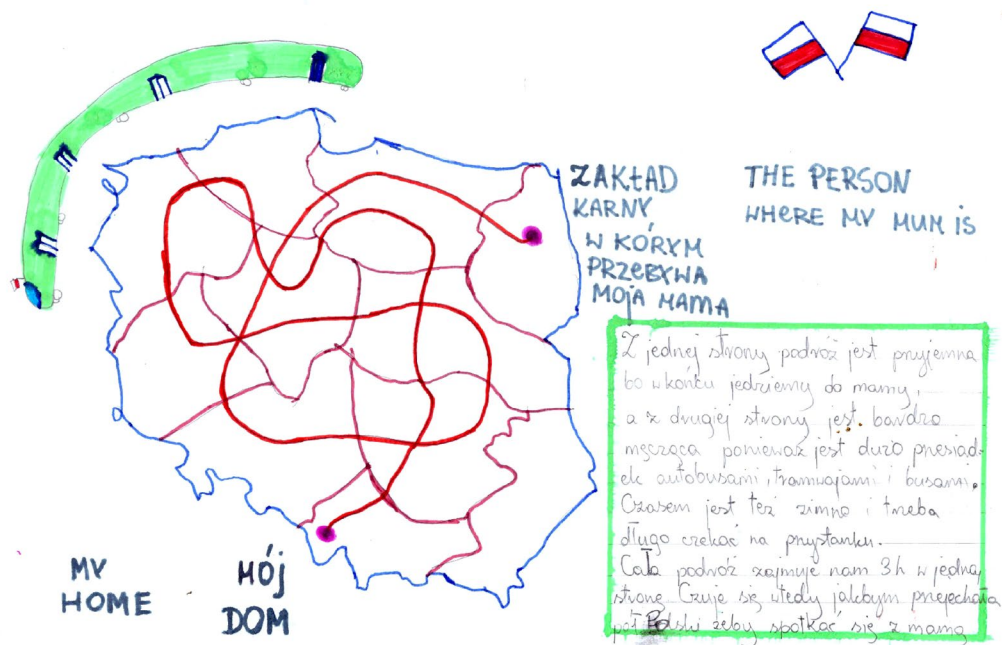 ZAKŁAD
KARNY
W KÓRYM
PRZEBYWA
MOJA MAMA
THE PERSON
WHERE MY MUM IS
Z jednej strony podróż jest przyjemna
bo w końcu jedziemy do mamy,
a z drugiej strony jest bardzo
męcząca ponieważ jest dużo przesiad-
ek autobusami, tramwajami i busami.
Czasem jest też zimno i trzeba
długo czekać na przystanku.
Cała podróż zajmuje nam 3h w jedną
stronę. Czuje się wtedy jakbym przejechała
pół Polski żeby spotkać się z mamą
MY
HOME
MÓJ
DOM